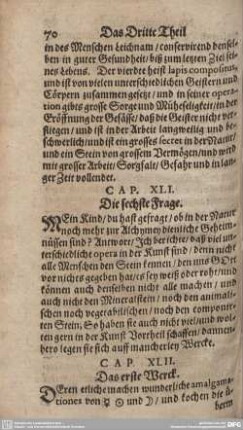 70 Das Dritte Theil
in des Menschen leichnam / conservirend denselben
ben in guter Gesundheit / biß zum letzten Ziel seines
nes lebens. Der vierdte heist lapis compositus,
und ist von vielen unterschiedlichen Geistern und
Cörpern zusammen gesetzt / und in seiner operation
tion gibts grosse Sorge und Mühseligkeit / in der
Eröffnung der Gefässe / daß die Geister nicht verfliegen
fliegen / und ist in der Arbeit langweilig und beschwerlich
schwerlich / und ist ein grosses secret in der Natur /
und ein Stein von grossem Vermögen / und wird
mit grosser Arbeit / Sorgfalt / Gefahr und in langer
ger Zeit vollendet.
CAP. XLI.
Die sechste Frage.
MEin Kind / du hast gefragt / ob in der Natur
noch mehr zur Alchymey dienliche Geheimnüssen
nüssen sind? Antwort / Ich berichte / daß viel unterschiedliche
terschiedliche opera in der Kunst sind / denn nicht
alle Menschen den Stein kennen / den uns GOtt
vor nichts gegeben hat / es sey weiß oder roht / und
können auch denselben nicht alle machen / und
auch nicht den Mineralstein / noch den animalischen
schen noch vegetabilischen / noch den componirten
ten Stein; So haben sie auch nicht viel / und wolten
ten gern in der Kunst Vortheil schaffen / dannenhero
hero legen sie sich auff mancherley Wercke.
CAP. XLII.
Das erste Werck.
DEren etliche machen wunderliche amalgamationes
tiones von ☿ ☉ und ☽ / und kochen die
überm